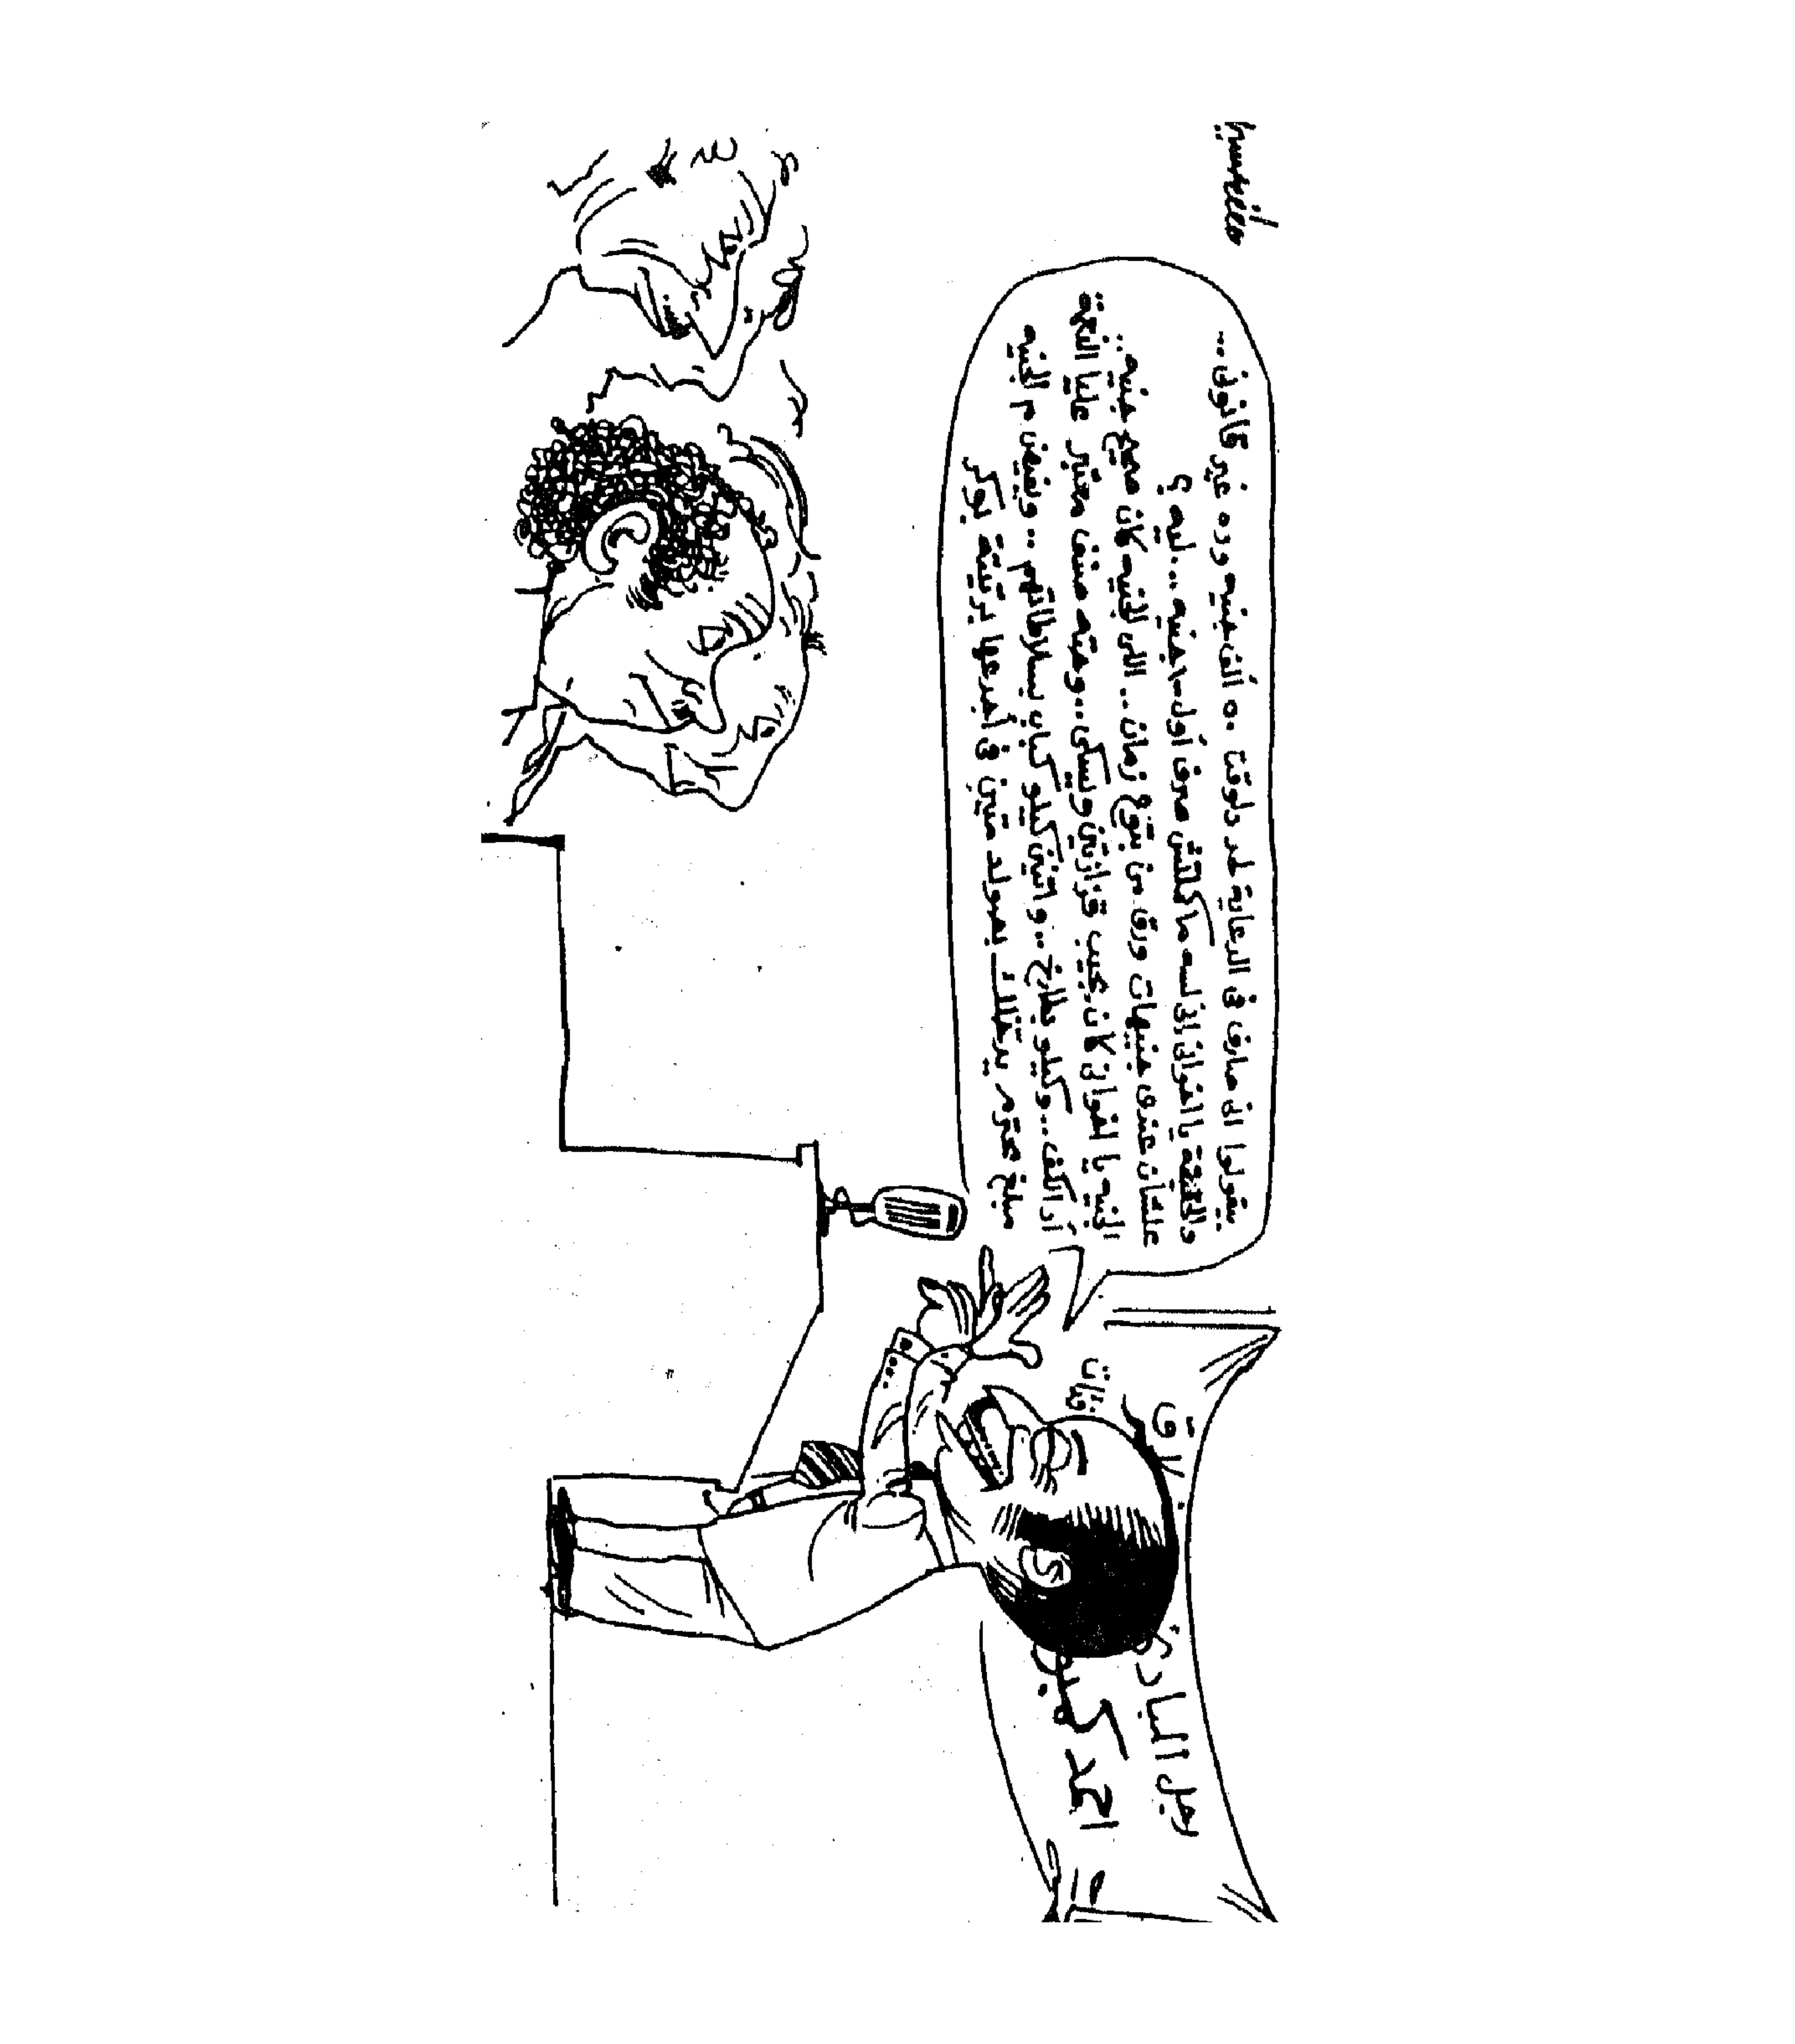 بيقولوا انى صارف فى الدعاية لحد دلوقت ٥٠ ألف جنيه وده غير قانونى...
والحقيقة يا اخوانا انا لسه ماكملتش صرف أول جنيه... ليه ؟
علشان عندى جنيهات ورق من بتوع زمان.. اللى الجنيه كان صحيح جنيه..
الجنيه يا اخوانا كان يجيب قزازتين ويسكى.. وحته صنف معتبر عليا النعمة
اللف.. وكيلو بطارخ.. واتنين كيلو كباب بسلاطاتهم.. ويفيض م الجنيه
مبلغ محترم فى أجدعها برتيتة بوكر
رجل المبادئ
احمد